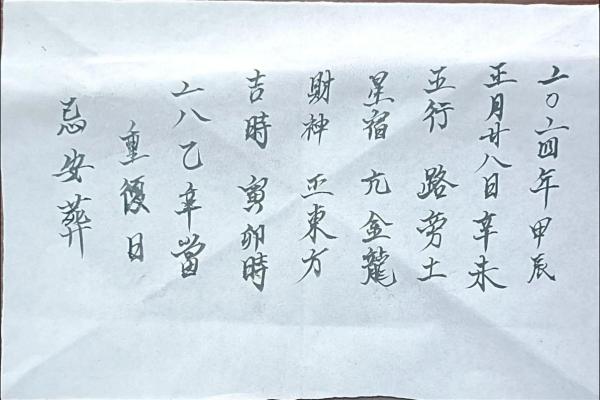 二〇二四年甲辰
正月廿八日辛未
五行 路旁土
星宿 亢金龍
財神 正東方
吉時 寅卯時
二八乙辛當
重復日
忌安葬